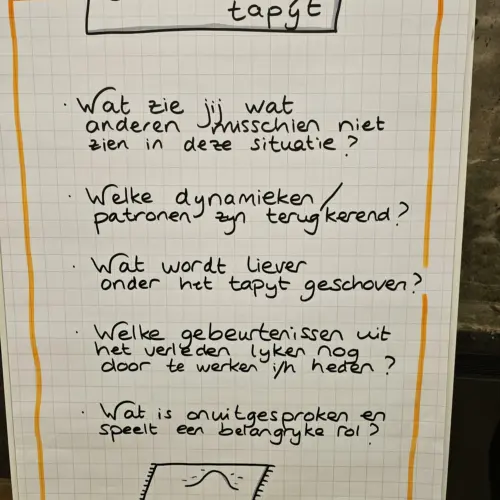 tapijt
· Wat zie jij wat
anderen misschien niet
zien in deze situatie?
· Welke dynamieken/
patronen zijn terugkerend?
· Wat wordt liever
onder het tapijt geschoven?
· Welke gebeurtenissen uit
het verleden lijken nog
door te werken i/h heden?
· Wat is onuitgesproken en
speelt een belangrijke rol?